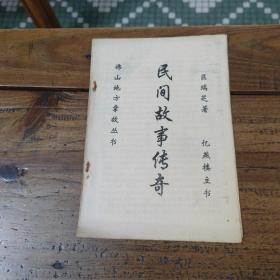 区瑞芝著 忆燕楼主书
民间故事传奇
佛山地方掌故丛书